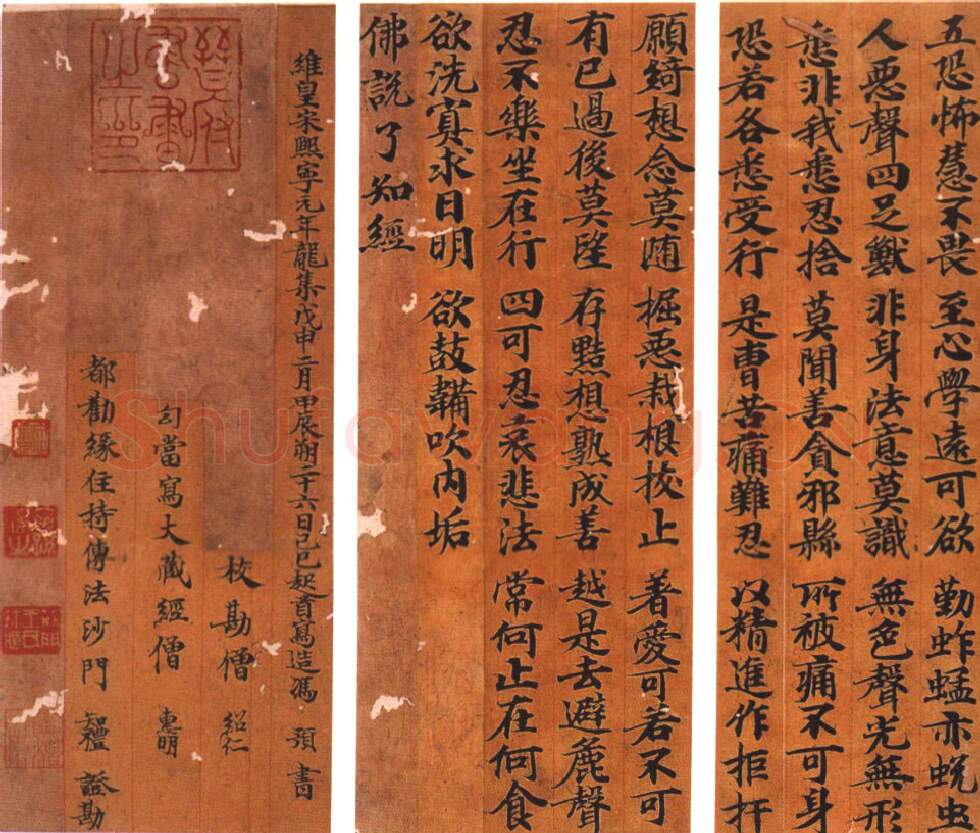 五恐怖慧不畏 至心學遠可欲 勤蚱蜢亦蛻虫
人惡聲四足獸 非身法意莫識 無色聲光無形
悉非我悉忍捨 莫聞善貪邪縣 所被痛不可身
恐若各悉受行 是曹苦痛難忍 以精進作拒扞
願綺想念莫随 掘惡栽根拔止 著愛可若不可
有已過後莫望 存黠想熟成善 越是去避麁聲
忍不樂坐在行 四可忍哀悲法 常何止在何食
欲洗冥求日明 欲鼓韛吹内垢
佛說了知經
維皇宋熙寧元年龍集戊申二月甲辰朔二十六日己巳起首寫造馮 預 書
校勘僧 紹仁
勾當寫大藏經僧 惠明
都勸緣住持傳法沙門 證勘
晉府書畫之印
Shufawang.cn